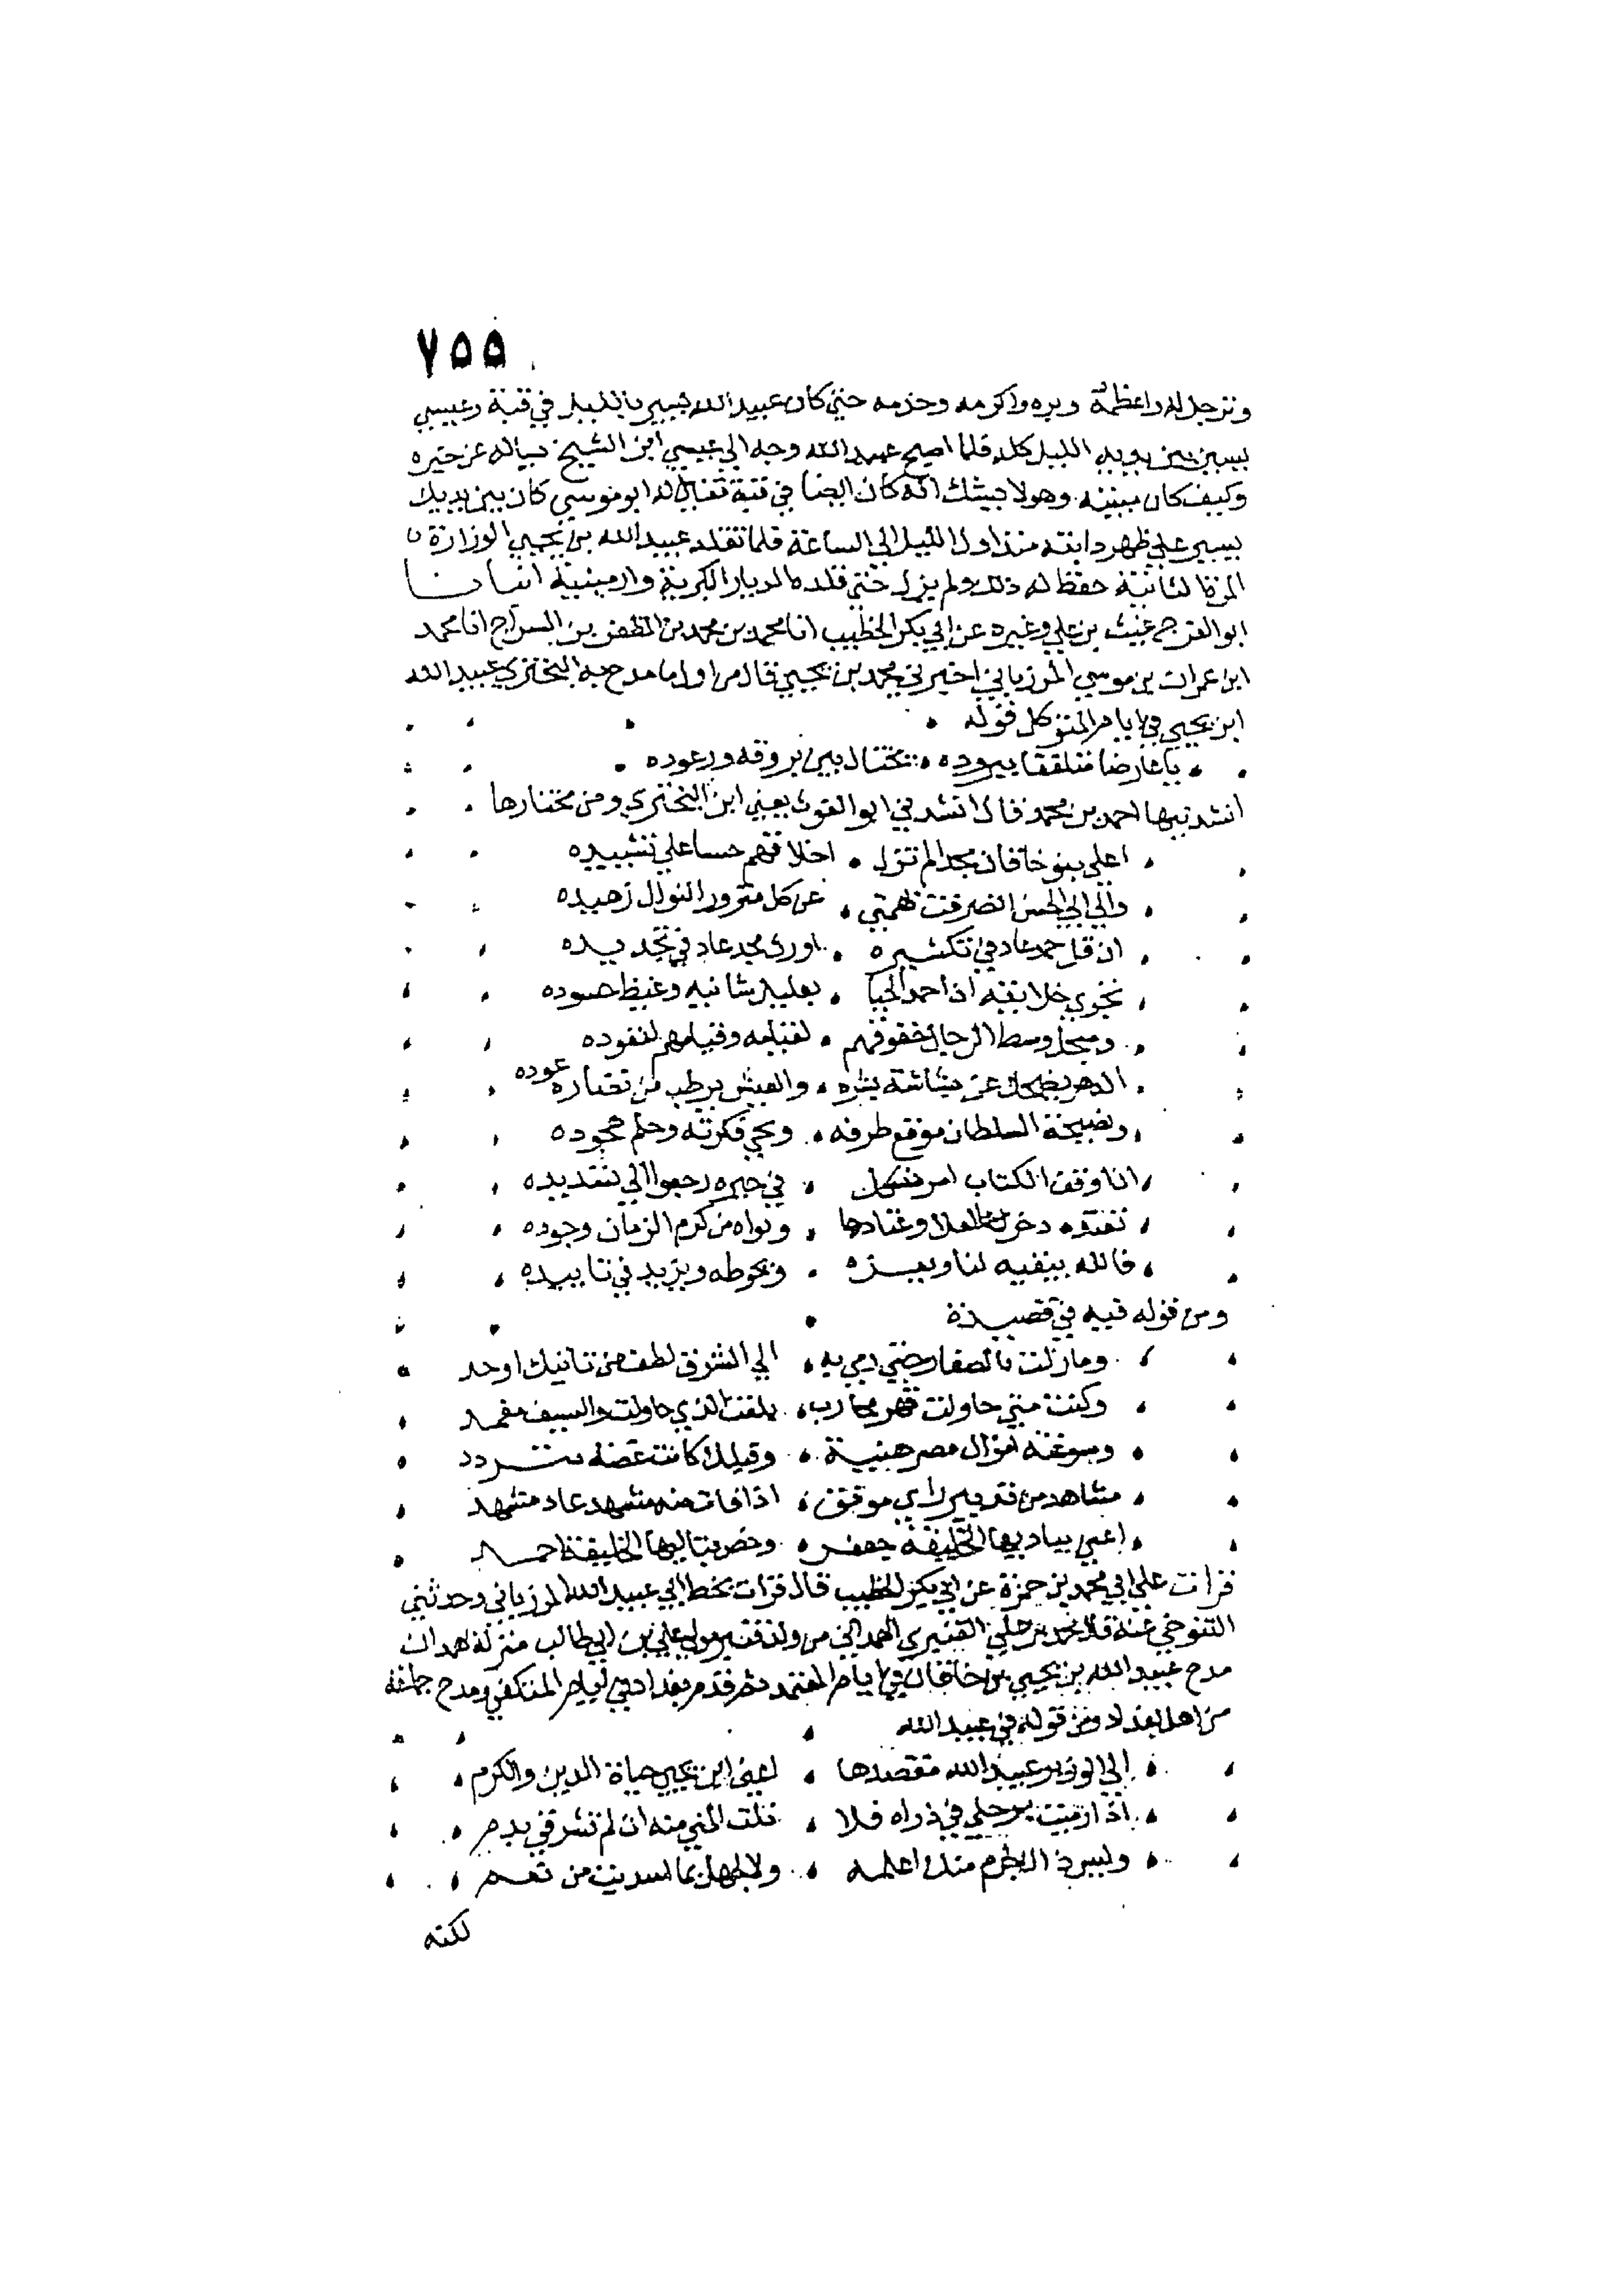 ٧٥٥
وترجل له واعظمه وبره واكرمه وخدمه حتى كان عبيد الله يسير بالليل في قبة وعيسى
يسير بين يديه الليل كله فلما اصبح عبيد الله وجه الى عيسى ابن الشيخ يساله عن خبره
وكيف كان مبيته وهو لا يشك انه كان ايضا في قبة فقال له ابو موسى كان بين يديك
يسير على ظهر دابته منذ اول الليل الى الساعة فلما تقلد عبيد الله بن يحيى الوزارة
المرة الثانية حفظ له ذلك ولم يزل حتى قلده الديار البكرية وارمينية انبانا
ابو الفرج غيث بن علي وغيره عن ابي بكر الخطيب انا محمد بن محمد بن المظفر بن السراج انا محمد
ابن عمران بن موسى المرزباني اخبرني محمد بن يحيى قال من اول ما مدح به البختري عبيد الله
ابن يحيى في ايام المتوكل قوله
يا عارضا متلفعا ببروده يختال بين بروقه ورعوده
انشدنيها احمد بن محمد قال انشدني ابو الغوث يعني ابن البختري ومن مختارها
اعلى بنو خاقان مجدا لم تزل اخلاقهم حبسا على تشييده
والى ابي الحسن انصرفت بهمتي عن كل منزور النوال زهيده
ان قل حمد عاد في تكثيره او رث مجد عاد في تجديده
تجري خلايقه اذا جمد الحيا بغليل شانيه وغيظ حسوده
ومبجل وسط الرجال خفوفهم لقيامه وقيامهم لقعوده
الدهر يضحك عن بشاشة بشره والعيش يرطب من نضارة عوده
ونصيحة السلطان موقع طرفه ونجي فكرته وحلم هجوده
اذا وقف الكتاب امر مشكل في حيره رجعوا الى تسديده
نعتده ذخر العلا وعتادها ونراه من كرم الزمان وجوده
فالله يبقيه لنا ويعزه ويحوطه ويزيد في تاييده
ومن قوله فيه في قصيدة
وما زلت بالصفار حتى رمى به الى الشرق لطف من تانيك اوحد
وكنت متى حاولت قهر محارب بلغت الذي حاولت والسيف مغمد
وسوغته اموال مصر هنية وقبلك كانت غصة تتردد
مشاهد من تدبير راي موفق اذا فات منه مشهد عاد مشهد
اعين بباديها الخليفة جعفر وخص بتاليها الخليفة احمد
قرات على ابي محمد بن حمزة عن ابي بكر الخطيب قال قرات بخط ابي عبيد الله المرزباني وحدثني
التنوخي عنه قال محمد بن علي القنبري الهمداني من ولد قنبر مولى علي بن ابي طالب منزله همدان
مدح عبيد الله بن يحيى بن خاقان في ايام المعتمد ثم قدم بغداد في ايام المكتفي ومدح جماعة
من اهل بغداد ومن قوله في عبيد الله
الى الوزير عبيد الله مقصدها اعني ابن يحيى حياة الدين والكرم
اذا رميت برحلي في ذراه فلا نلت المنى منه ان لم تشرقي بدم
وليس ذاك لجرم منك اعلمه ولا لجهل بما اسديت من نعم
لكنه